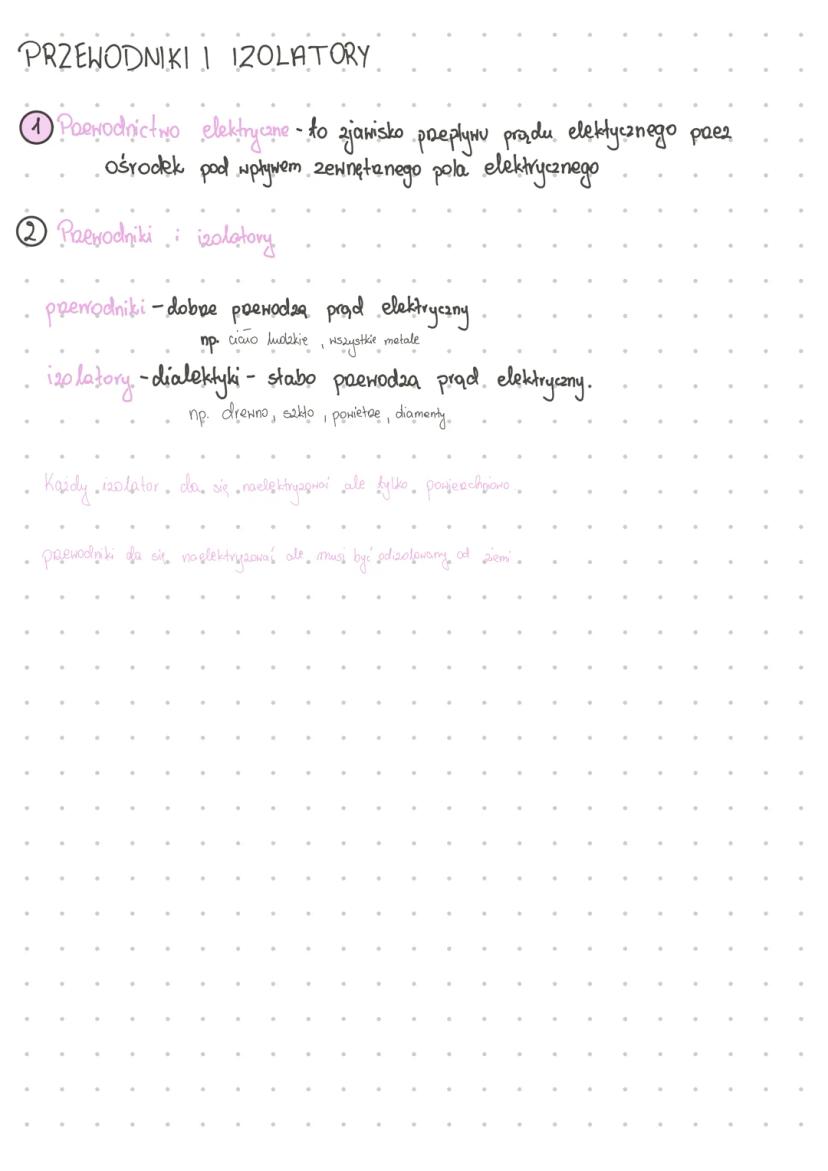 PRZEWODNIKI I IZOLATORY
1 Przewodnictwo elektryczne - to zjawisko przepływu prądu elektycznego przez
ośrodek pod wpływem zewnętrznego pola elektrycznego
2 Przewodniki i izolatory
przewodniki - dobrze przewodzą prąd elektryczny
np. ciało ludzkie, wszystkie metale
izolatory - dialektyki - słabo przewodzą prąd elektryczny.
np. drewno, szkło, powietrze, diamenty
Każdy izolator da się naelektryzować ale tylko powierzchniowo
przewodniki da się naelektryzować ale musi być odizolowany od ziemi